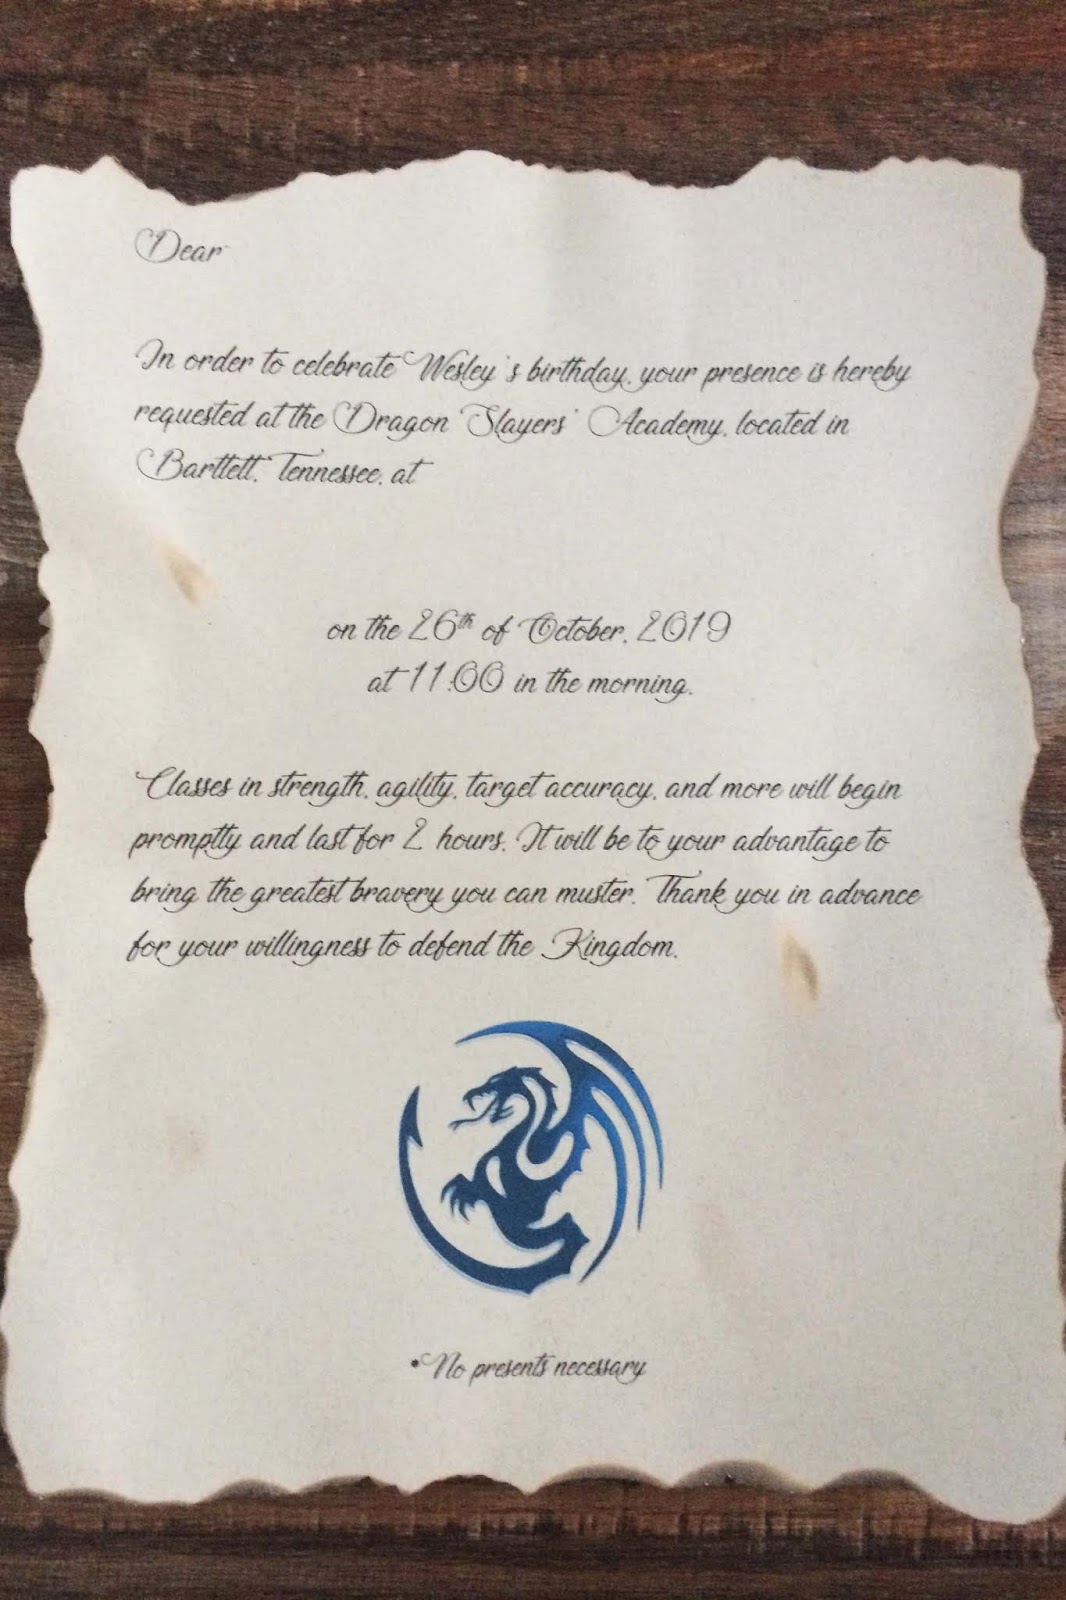 Dear
In order to celebrate Wesley's birthday, your presence is hereby
requested at the Dragon Slayers' Academy, located in
Bartlett, Tennessee, at
on the 26th of October, 2019
at 11:00 in the morning.
Classes in strength, agility, target accuracy, and more will begin
promptly and last for 2 hours. It will be to your advantage to
bring the greatest bravery you can muster. Thank you in advance
for your willingness to defend the Kingdom.
*No presents necessary